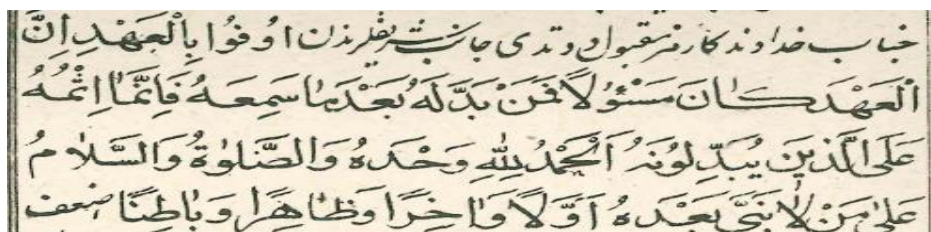 جناب خداوندكار مقبول جانب اَوْفُوا بِالْعَهْدِ اِنَّ
الْعَهْدَ كَانَ مَسْئُولًا فَمَنْ بَدَّلَهُ بَعْدَمَا سَمِعَهُ فَاِنَّمَا اِثْمُهُ
عَلَى الَّذِينَ يُبَدِّلُونَهُ اَلْحَمْدُ لِلّٰهِ وَحْدَهُ وَالصَّلٰوةُ وَالسَّلَامُ
عَلٰى مَنْ لَا نَبِيَّ بَعْدَهُ اَوَّلًا وَاٰخِرًا وَظَاهِرًا وَبَاطِنًا ضعف